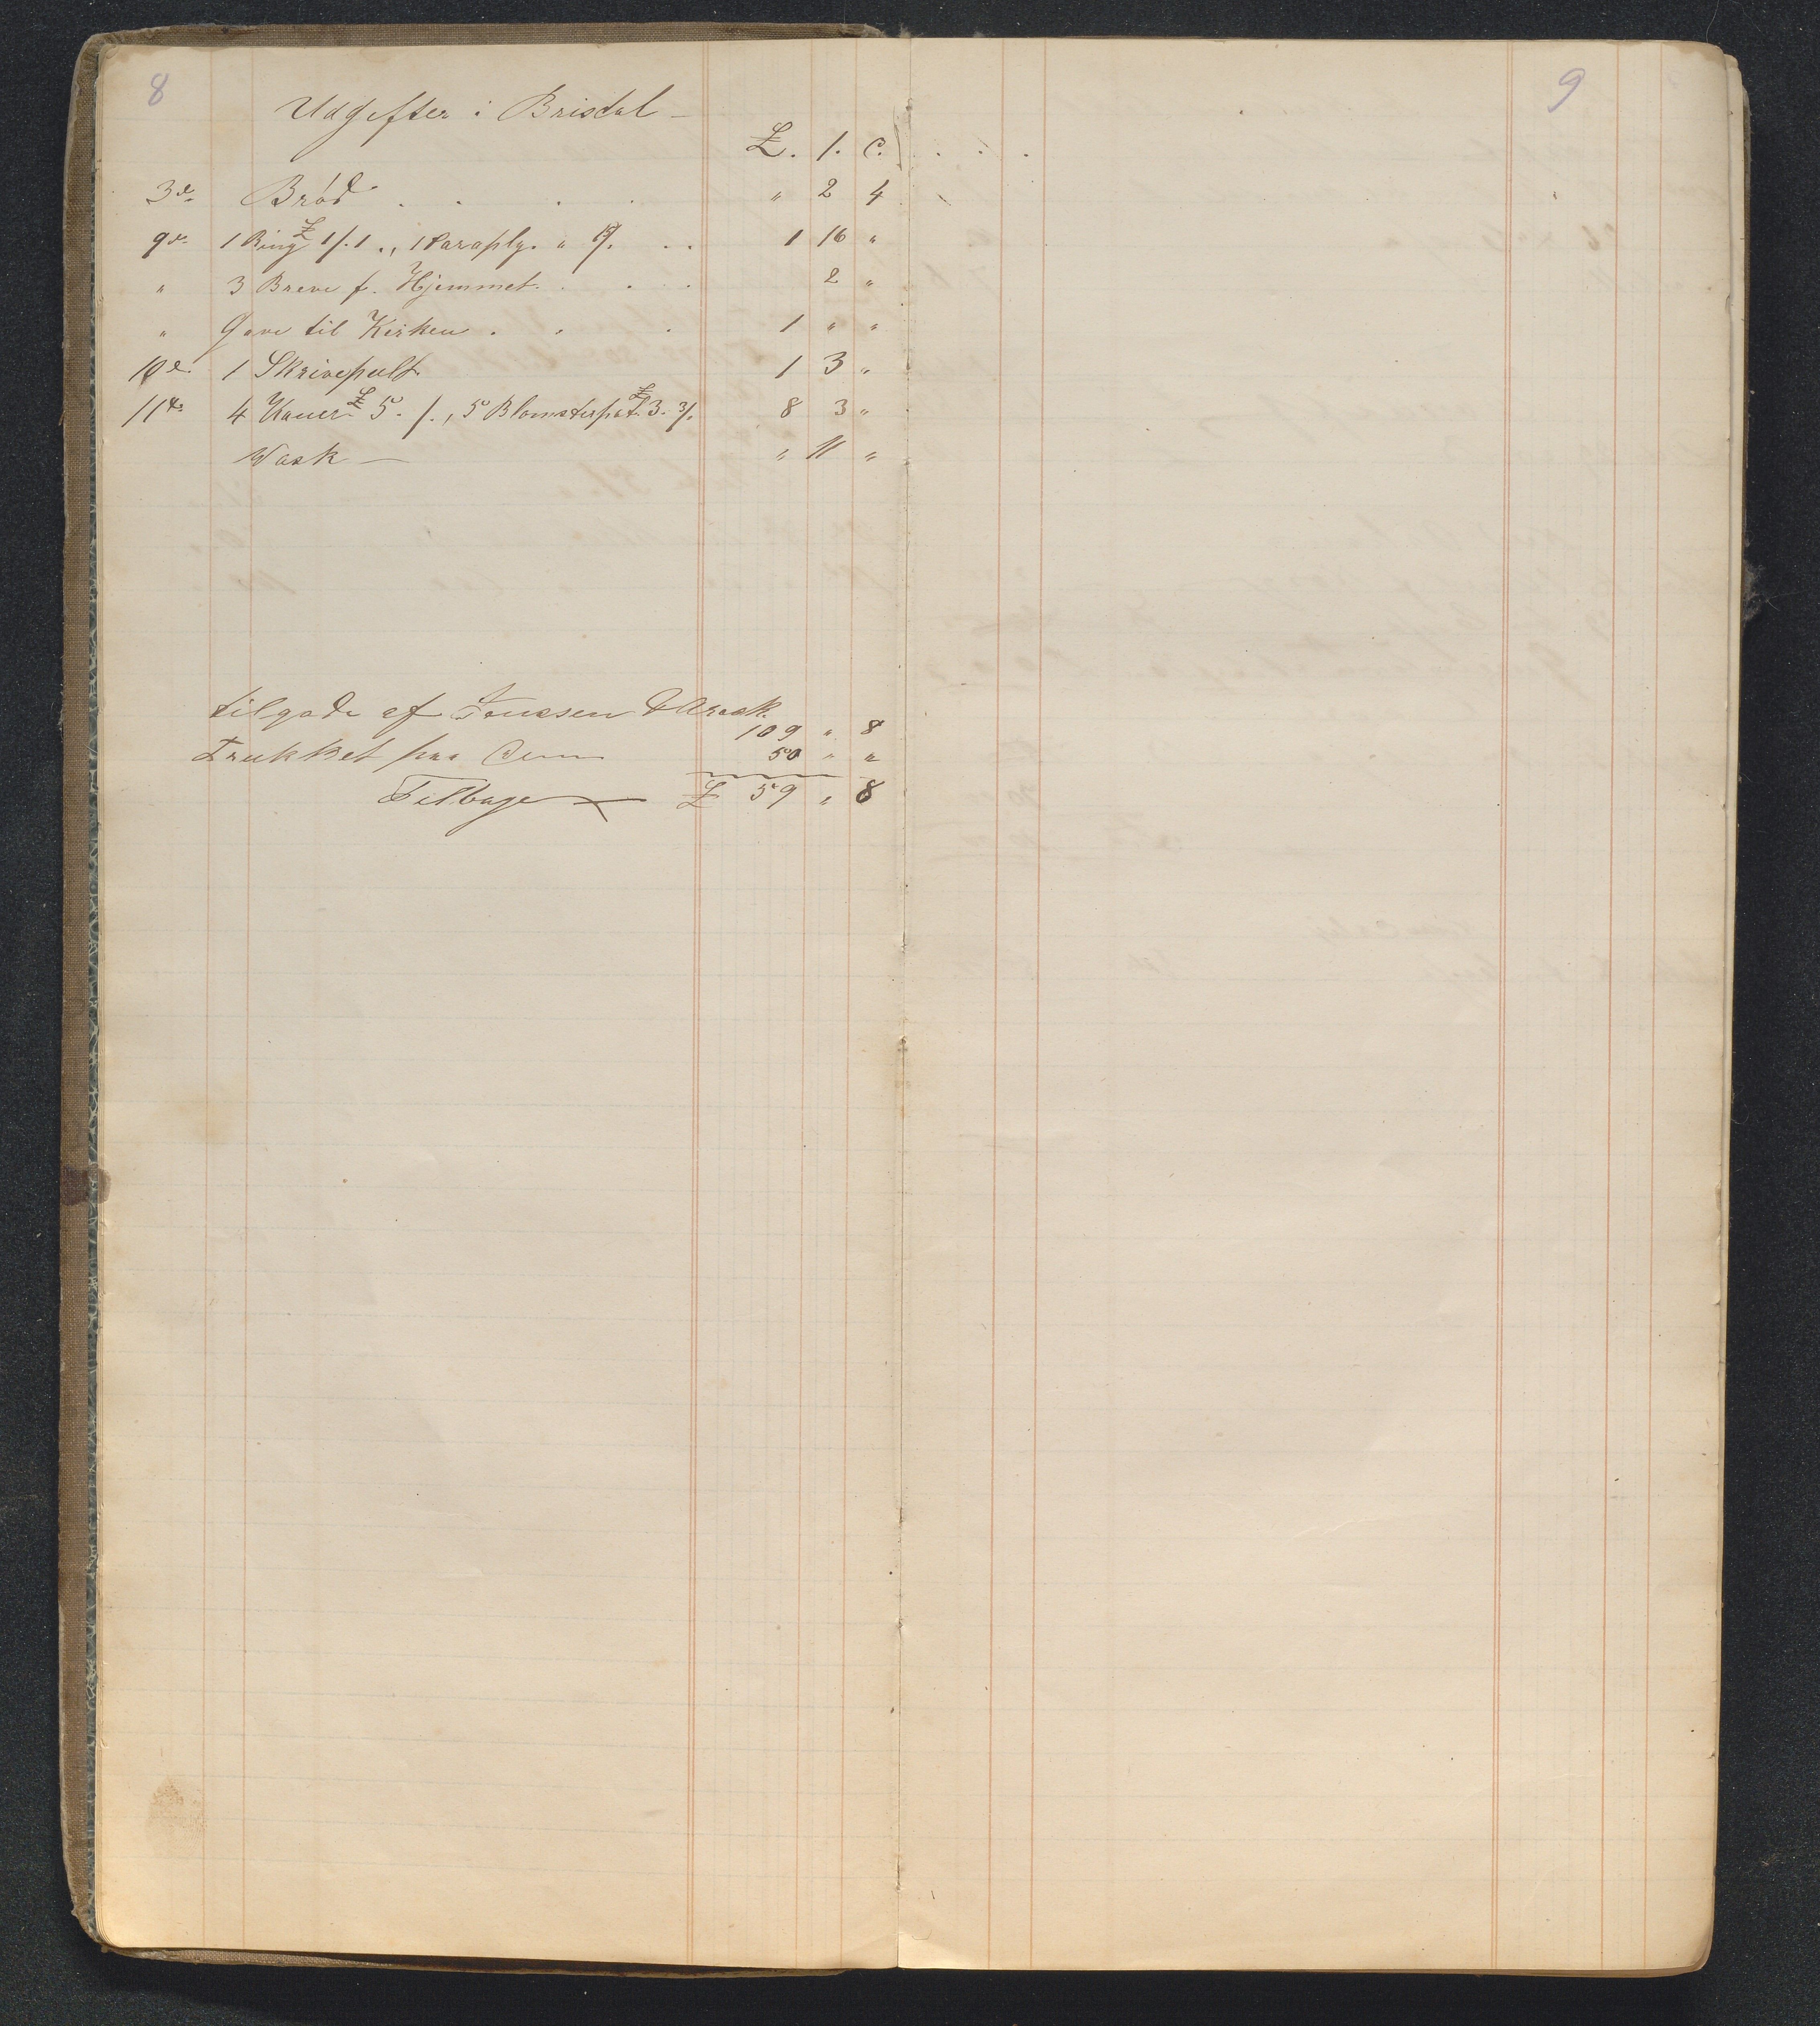 8
Udgifter i Bristol —
£. /. c.
3de Brød . . . . " 2 4
9de 1 Ring £ 1/. 1 ., 1 Paraply. " 19. . . 1 16 "
" 3 Breve f. Hjemmet. . . . 2 "
" Gave til Kirken . . . 1 " "
10de 1 Skrivepult 1 3 "
11te 4 £ 5. /., 5 Blomsterpot. £ 3. 3/. 8 3 "
Vask — " 11 "
tilgode af
109 " 8
Trukket paa Dem 50 " "
Tilbage £ 59 " 8
9